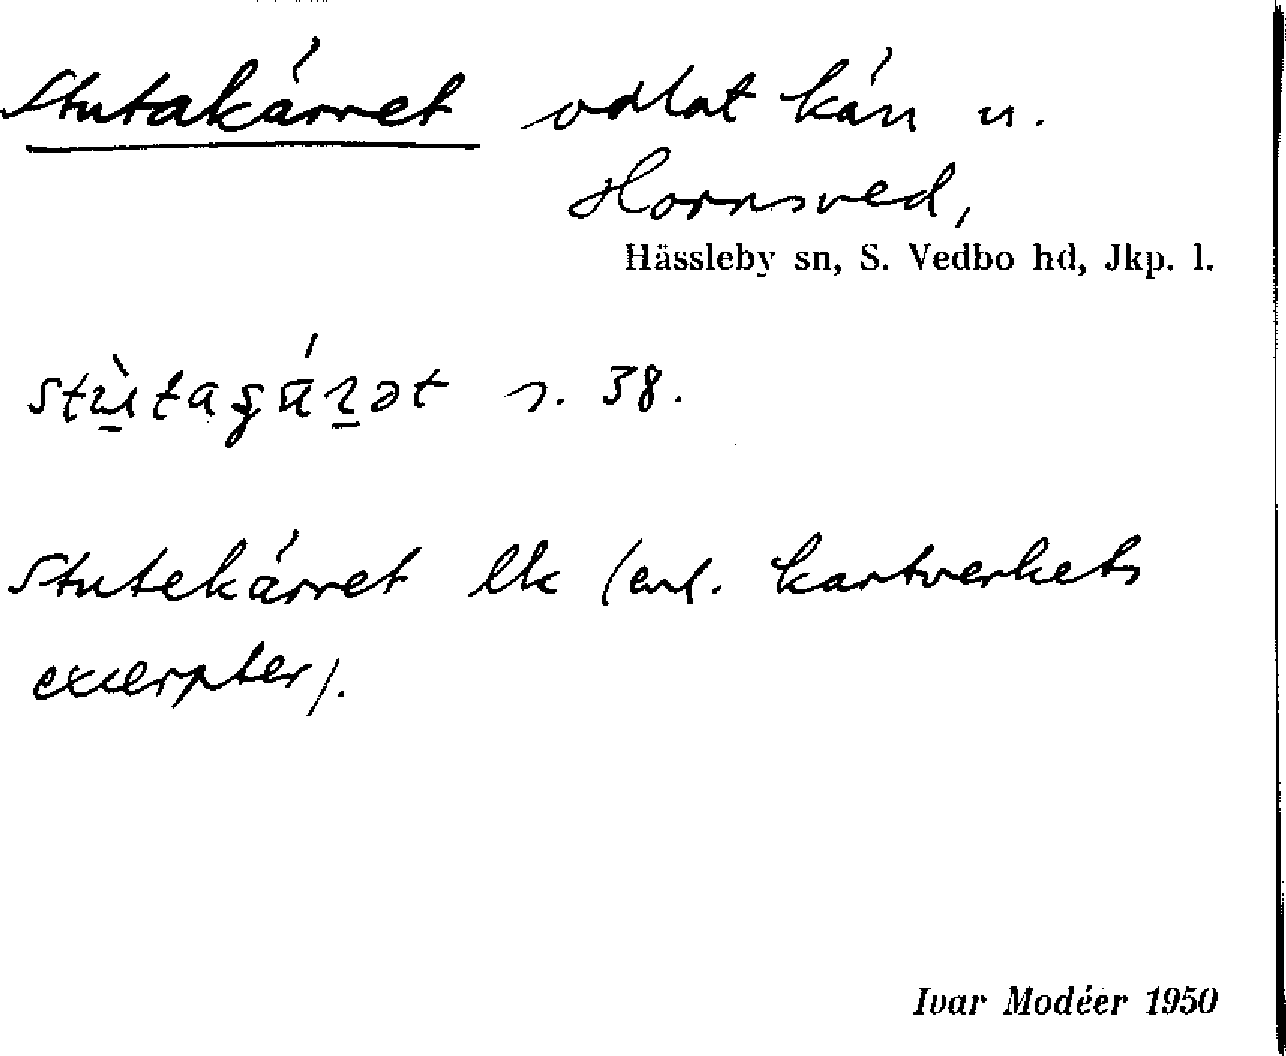 Stutakärret odlat kärr u.
Hornsved,
Hässleby sn, S. Vedbo hd, Jkp. l.
s. 38.
Stutekärret lk (enl. kartverkets
excerpter).
Ivar Modéer 1950